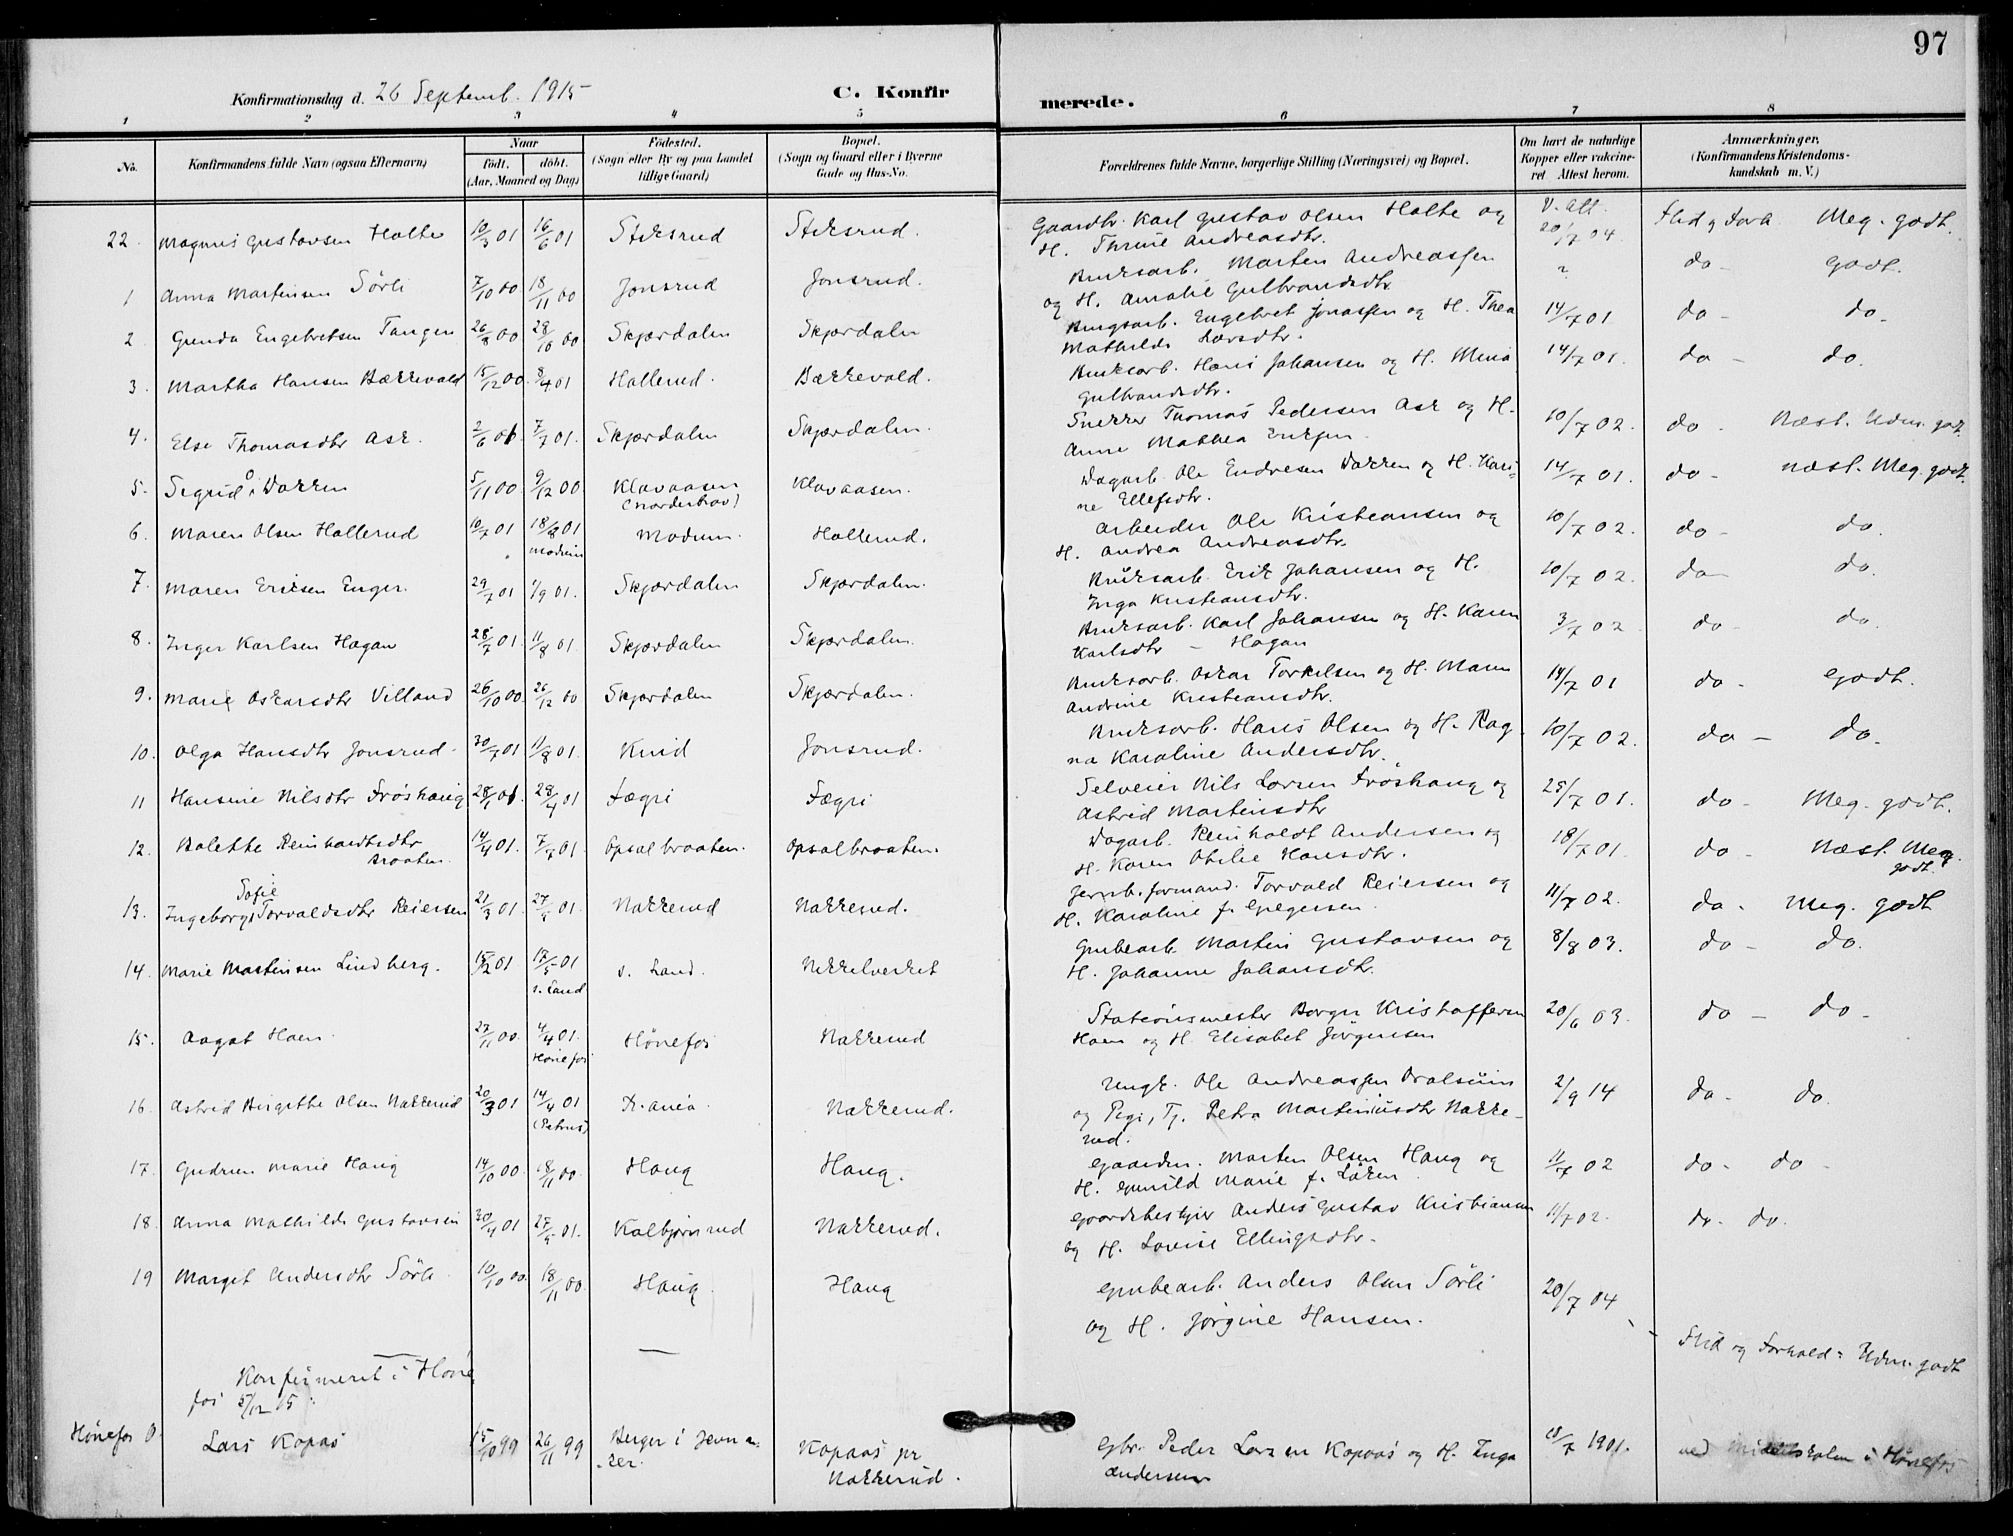 97
Konfirmationsdag d. 26 Septemb. 1915
C. Konfir
merede.
1 2 3 4 5 6 7 8
No. Konfirmandens fulde Navn (ogsaa Efternavn)
Naar
født. døbt.
(Aar, Maaned og Dag)
Fødested.
(Sogn eller By og paa Landet
tillige Gaard)
Bopæl.
(Sogn og Gaard eller i Byerne
Gade og Hus-No.
Forældrenes fulde Navne, borgerlige Stilling (Næringsvei) og Bopæl.
Om havt de naturlige
Kopper eller vakcine-
ret Attest herom.
Anmærkninger.
(Konfirmandens Kristendoms-
kundskab m. V.)
22. Magnus Gustavsen Holte 10/3 01 16/6 01 Stixrud Stixrud. Gaardbr. Karl Gustav Olsen Holte og V. Att. 20/7 04 Flid & Forh. Meg. godt.
H. Thrine Andreasdtr.
1 Anna Martinsen Sørli 7/10 00 18/11 00 Jonsrud Jonsrud. Bruksarb. Martin Andreassen ? do - Godt.
og H. Amalie Gulbrandsdtr
2 Gunda Engebretsen Tangen 26/8 00 28/10 00 Skjærdalen Skjærdalen Brugsarb. Engebret Jonassen og H. Thea 14/7 01 do - do.
Mathilde Larsdtr.
3. Martha Hansen Bækkevold 15/12 00. 8/4 01 Hallerud. Bækkevold. Bruksarb. Hans Johansen og H. Mina 14/7 01. do - do.
Gulbrandsdtr.
4. Else Thomasdtr Ask. 2/6 01 7/7 01. Skjærdalen Skjærdalen. Snekker Thomas Pedersen Ask og H. 10/7 02. do - Næst. Udm. godt.
Anne Mathea Eriksen
5. Sigrid O. Dokken 5/11 00 9/12 00 Klavaasen Klavaasen. Dagarb. Ole Endresen Dokken og H. Kari- 14/7 01. do - Næst. Meg. godt.
(Norderhov) ne Ellefsdtr.
6. Maren Olsen Hallerud 10/7 01 18/8 01 Modum. Hallerud. Arbeider Ole Kristiansen og 10/7 02. do - do.
Modum H. Andrea Andreasdtr.
7. Maren Eriksen Enger. 29/7 01 1/9 01. Skjærdalen Skjærdalen. Bruksarb. Erik Johansen og H. 10/7 02. do do.
Inga Kristiansdtr.
8. Inger Karlsen Hagan 28/7 01. 11/8 01. Skjærdalen Skjærdalen. Bruksarb. Karl Johansen og H. Karen 3/7 02 do - do.
Karlsdtr - Hagan
9. Marie Oskarsdtr Villand 26/10 00. 26/12 00 Skjærdalen Skjærdalen. Bruksarb. Oskar Torkelsen og H. Maren 14/7 01 do - Godt.
Andrine Kristiansdtr.
10. Olga Hansdtr Jonsrud 30/7 01 11/8 01. Knid Jonsrud. Bruksarb. Hans Olsen og H. Rag- 10/7 02. do - do.
na Karoline Andersdtr.
11 Hansine Nilsdtr Frøshaug 28/1 01 28/4 01 Fægri Fægri Selveier Nils Larsen Frøshaug og 25/7 01. do - Meg. godt.
Astrid Martinsdtr
12. Bolette Reinhardtsdtr 14/4 01. 7/7 01. Opsalbraaten. Opsalbraaten. Dagarb. Reinholdt Andersen og 18/7 01. do - Næst. Meg.
Braaten. H. Karen Otilie Hansdtr. godt.
13. Ingeborg Sofie Torvaldsdtr Reiersen 21/3 01. 27/5 01. Nakkerud Nakkerud. Jernb.formand. Torvald Reiersen og 11/7 02. do - Meg. godt
H. Karoline f. Gregersen.
14. Marie Martinsen Lindberg. 15/2 01. 17/5 01 S. Land. Nikkelverket Grubearb. Martin Gustavsen og 8/8 03. do - do.
S. Land H. Johanne Johansdtr.
15. Aagot Hoen. 27/11 00. 4/4 01. Hønefos Nakkerud Stationsmester Borger Kristoffersen 20/6 03. do - do -
Hønefos Hoen og H. Elisabet Jørgensen
16. Astrid Birgitte Olsen Nakkerud 20/3 01 14/4 01 Kr.ania. Nakkerud. Ungk. Ole Andreassen Dralsum 2/9 14 do - do.
(Petrus) og Pige, Tj. Petra Martiniusdtr Nakke-
rud.
17. Gudrun Marie Haug 14/10 00. 18/11 00. Haug Haug. Gaardm. Martin Olsen Haug og 11/7 02 do - do -
H. Gunild Marie f. Løken
18. Anna Mathilde Gustavsen 30/4 01 27/5 01. Kolbjørnrud Nakkerud. Gaardsbestyrer Anders Gustav Kristiansen 11/7 02. do - do.
og H. Lovise Ellingsdtr.
19 Margit Andersdtr Sørli. 10/10 00. 18/11 00. Haug. Haug Grubearb. Anders Olsen Sørli 20/7 04
og H. Jørgine Hansen.
Konfirmeret i Høne
fos 5/12 15.
Flid og Forhold: Udm. godt
Hønefos Lars Kopås 15/10 99 26/11 99 Berger i Jevna- Kopaas pr Gbr. Peder Larsen Kopaas og H. Inga 18/7 1901. ved Middelskolen i Hønefos
ker. Nakkerud. Andersen